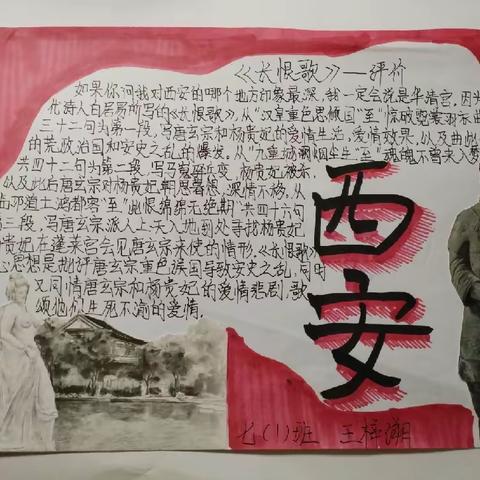 《长恨歌》——评价
如果你问我对西安的哪个地方印象最深，我一定会说是华清宫，因为
诗人白居易所写的《长恨歌》，从“汉皇重色思倾国”至“惊破霓裳羽衣曲
三十二句为第一段，写唐玄宗和杨贵妃的爱情生活、爱情效果，以及由此
的荒政治国和安史之乱的爆发。从“九重城阙烟尘生”至“魂魄不曾来入梦
共四十二句为第二段，写马嵬驿兵变，杨贵妃被杀
以及此后唐玄宗对杨贵妃朝思暮想，深情不移。从
临邛道士鸿都客”至“此恨绵绵无绝期”共四十六句
第三段，写唐玄宗派人上天入地到处寻找杨贵妃
杨贵妃在蓬莱宫会见唐玄宗来使的情形。《长恨歌》
心思想是批评唐玄宗重色误国导致安史之乱，同时
又同情唐玄宗和杨贵妃的爱情悲剧，歌
颂他们生死不渝的爱情.
西安
七(1)班 王梓潮